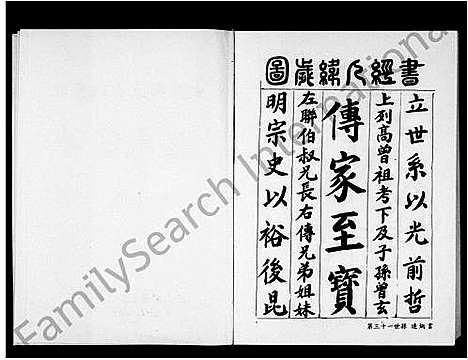 書經人緯歲圖
立世系以光前哲
上列高曾祖考下及子孫曾玄
傳家至寶
左聯伯叔兄長右傳兄弟姐妹
明宗史以裕後昆
第三十一世孫 達炳書
FamilySearch International